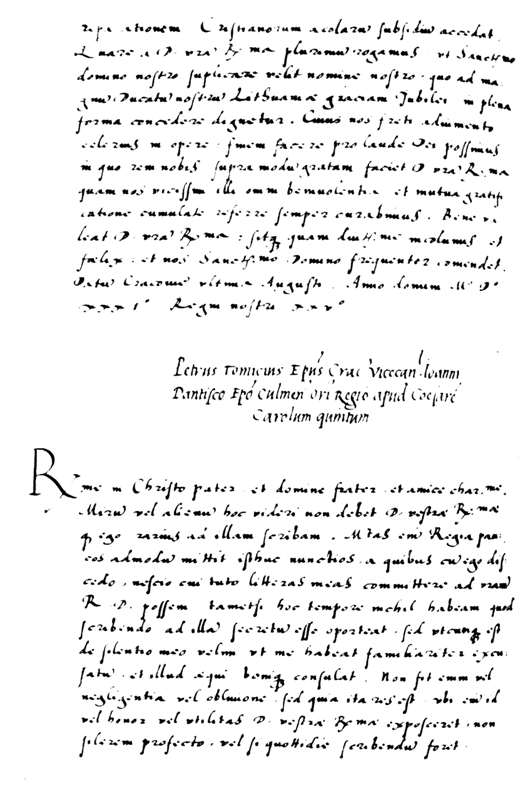 Cristianorum acolaru subsidiu accedat.
Quare a D. vra Rma plurimu rogamus vt Sanctissimo
domino nostro suplicare velit nomine nostro. quo ad ma
gnu Ducatu nostru Lithuaniæ graciam Jubilei in plena
forma concedere dignetur. Cuius nos freti adiumento
celerius in opere finem facere pro laude Dei possimus
in quo rem nobis supra modu gratam faciet D vra Rma
quam nos vicissim illi omni beniuolentia et mutua gratifi
catione cumulate referre semper curabimus. Bene va
leat D. vra Rma: sitq quam diutissime incolumis et
fœlix. et nos Sanctissimo Domino frequenter comendet.
Datu Cracouie vltima Augusti. Anno domini M° D°
xxx I° Regni nostri xxv°
Petrus Tomicius Epus Crac Vicecan. Ioanni
Dantisco Epo Culmen Ori Regio apud Cæsare
Carolum quintum
Rme in Christo pater et domine frater et amice charme.
Miru vel alienu hoc videri non debet D. vestræ Rmæ
q ego rarius ad illam scribam. Mtas em Regia pau
cos admodu mittit isthuc nuncios, a quibus cu ego dis
cedo, nescio cui tuto litteras meas committere ad vram
R D. possem tametsi hoc tempore nichil habeam quod
scribendo ad illa secretu esse oporteat. sed vtcunq est
de silentio meo velim vt me habeat familiariter excu
satu et illud æqui boniq consulat. Non fit enim vel
negligentia vel obliuione, sed quia ita res est. vbi em id
vel honor vel vtilitas D. vestræ Rmæ exposceret. non
silerem profecto, vel si quottidie scribendu foret.